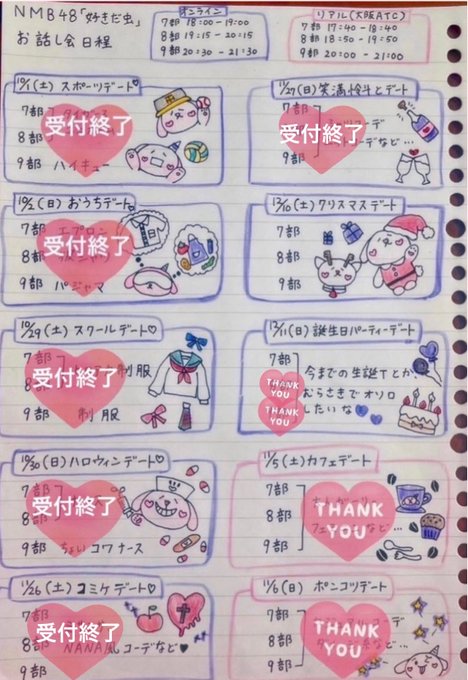 NMB48「好きだ虫」
お話し会日程
オンライン
7部 18:00-19:00
8部 19:15-20:15
9部 20:30-21:30
リアル(大阪ATC)
7部 17:40-18:40
8部 18:50-19:50
9部 20:00-21:00
10/1(土)スポーツデート♡
7部
8部
9部 ハイキュー
受付終了
10/2(日)おうちデート
7部 エプロン
8部
9部 パジャマ
受付終了
10/29(土)スクールデート♡
7部
8部 制服
9部 制服
受付終了
10/30(日)ハロウィンデート♡
7部
8部
9部 ちょいコワナース
受付終了
11/26(土)コミケデート♡
7部
8部 NANA風コーデなど♥
9部
受付終了
11/27(日)笑満怜斗とデート
7部
8部 コーデなど…
9部
受付終了
12/10(土)クリスマスデート
7部
8部
9部
12/11(日)誕生日パーティーデート
7部
8部
9部
今までの生誕Tとか、
むらさきでオソロ
したいな
THANK YOU
THANK YOU
11/5(土)カフェデート
7部
8部
9部
THANK YOU
11/6(日)ポンコツデート
7部
8部
9部
THANK YOU